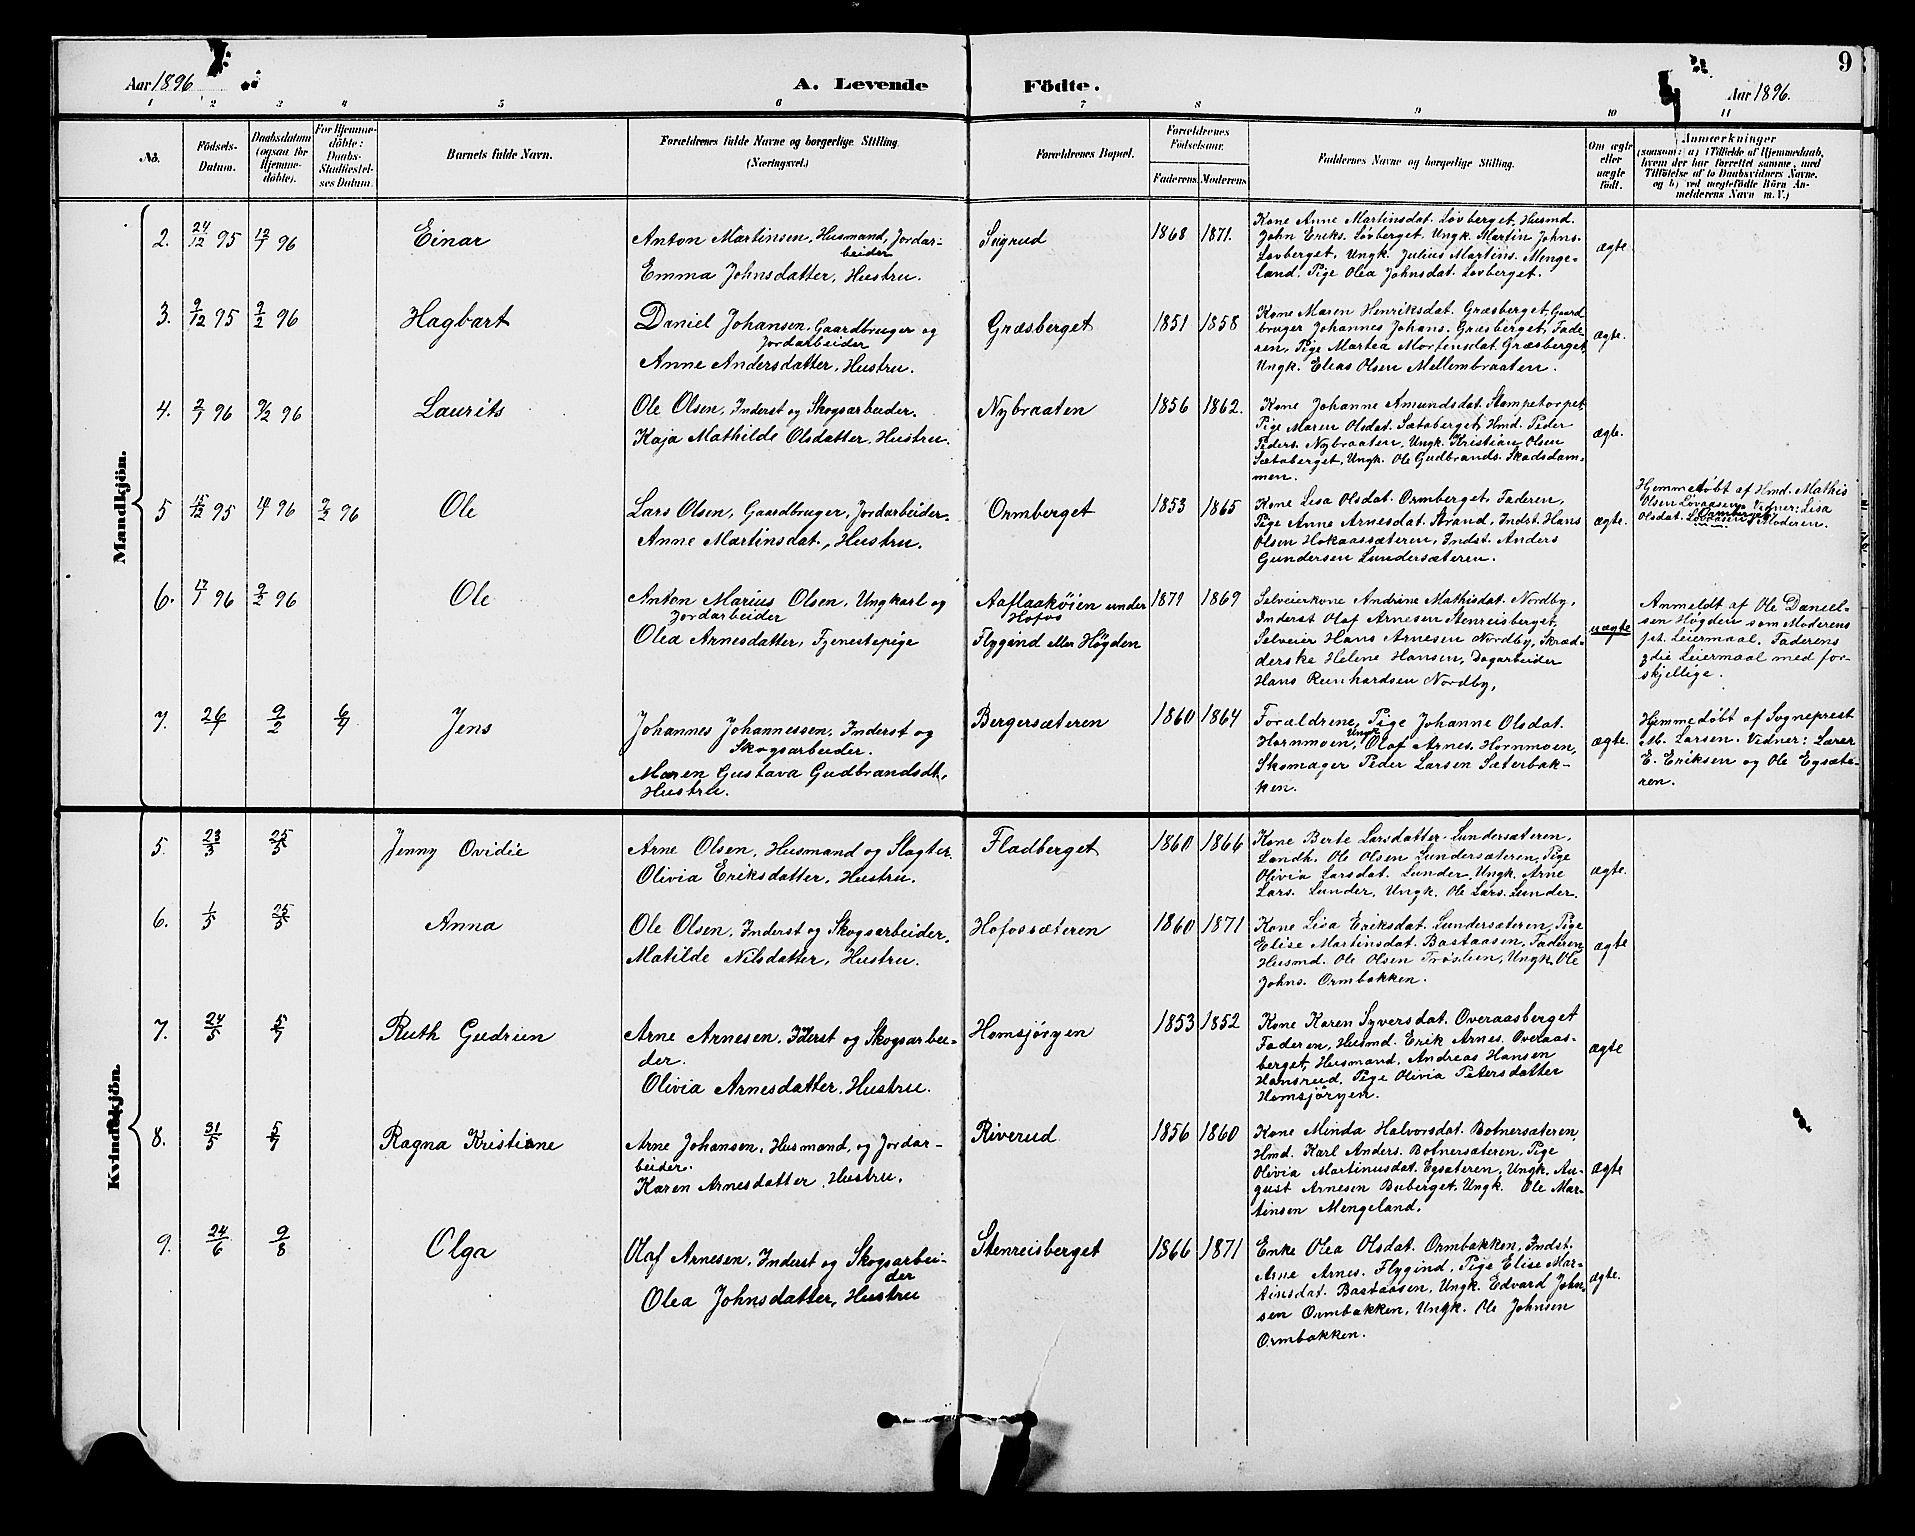 9
Aar 1896
A. Levende
Födte.
Aar 1896.
1 2 3 4 5 6 7 8 9 10 11
No.
Födsels-
Datum.
Daabsdatum
(ogsaa for
Hjemme-
döbte).
For Hjemme-
döbte:
Daabs-
Stadfæstel-
ses Datum.
Barnets fulde Navn.
Forældrenes fulde Navne og borgerlige Stilling.
(Næringsvei.)
Forældrenes Bopæl.
Forældrenes
Födselsaar.
Faderens. Moderens.
Faddernes Navne og borgerlige Stilling.
Om ægte
eller
uægte
födt.
Anmærkninger
(saasom: a) i Tilfælde af Hjemmedaab,
hvem der har forrettet samme, med
Tilföielse af to Daabsvidners Navne.
og b) ved uægtefödte Börn An-
melderens Navn m.V.)
Mandkjön.
2. 24/12 95 12/1 96 Einar
Anton Martinsen, Husmand, Jordar-
beider
Emma Johnsdatter, Hustru.
Sigrud
1868 1871.
Kone Anne Martinsdat. Løvberget, Husmd.
John Eriks. Løvberget, Ungk. Martin Johns.
Løvberget, Ungk. Julius Martins. Menge-
land. Pige Olea Johnsdat. Løvberget.
ægte.
3. 9/12 95 9/2 96 Hagbart
Daniel Johansen, Gaardbruger og
Jordarbeider
Anne Andersdatter, Hustru.
Græsberget
1851 1858
Kone Maren Henriksdat. Græsberget, Gaard
bruger Johannes Johans. Græsberget, Fade-
ren, Pige Martea Mortensdat. Græsberget,
Ungk. Elias Olsen Mellembraaten.
ægte.
4. 2/1 96 9/2 96 Laurits
Ole Olsen, Inderst og Skogsarbeider.
Kaja Mathilde Olsdatter, Hustru.
Nybraaten
1856 1862.
Kone Johanne Amundsdat. Stampetorpet,
Pige Maren Olsdat. Sætaberget, Hmd. Peder
Peders. Nybraaten, Ungk. Kristian Olsen
Sætaberget, Ungk. Ole Gudbrands. Skadsdam-
men.
ægte.
5 15/12 95 96 9/2 96 Ole
Lars Olsen, Gaardbruger, Jordarbeider.
Anne Martinsdat., Hustru.
Ormberget
1853 1865
Kone Lisa Olsdat. Ormberget, Faderen,
Pige Anne Arnesdat. Strand, Indst. Hans
Olsen Hokaassæteren, Indst. Anders
Gundersen Lundersæteren.
ægte.
Hjemmedøbt af Hmd. Mathis
Olsen Løvaasen, Vidner: Lisa
Ormberget
Olsdat. Løvaasen, Moderen.
6. 17/1 96 9/2 96 Ole
Anton Marius Olsen, Ungkarl og
Jordarbeider
Olea Arnesdatter, Tjenestepige
Aaflaakøien under
Hofos
Flygind eller Høgden
1871 1869
Selveierkone Andrine Mathisdat. Nordby,
Inderst Olaf Arnesen Stenreisberget,
Selveier Hans Arnesen Nordby, Skræd-
derske Helene Hansen, Dagarbeider
Hans Reinhardsen Nordby,
uægte
Anmeldt af Ole Daniel-
sen Høgden som Moderens
1st. Leiermaal, Faderens
3die Leiermaal med for-
skjellige.
7. 26/1 9/2 6/4 Jens
Johannes Johannessen, Inderst og
Skogsarbeider.
Maren Gustava Gudbrandsdt.,
Hustru.
Bergersæteren
1860 1864
Forældrene, Pige Johanne Olsdat.
Hornmoen, Ungk. Olaf Arnes. Hornmoen,
Skomager Peder Larsen Sæterbak-
ken.
ægte.
Hjemmedøbt af Sogneprest
M. Larsen. Vidner: Lærer
E. Eriksen og Ole Egsæte-
ren.
Kvindekjön.
5. 23/3 25/5 Jenny Ovidie
Arne Olsen, Husmand og Slagter.
Olivia Eriksdatter, Hustru.
Fladberget
1860 1866
Kone Berte Larsdatter Lundersæteren,
Landh. Ole Olsen Lundersæteren, Pige
Olivia Larsdat. Lunder, Ungk. Arne
Lars. Lunder, Ungk. Ole Lars. Lunder.
ægte.
6. 1/5 25/5 Anna
Ole Olsen, Inderst og Skogsarbeider,
Matilde Nilsdatter, Hustru.
Hofossæteren
1860 1871
Kone Lisa Eriksdat. Lundersæteren, Pige
Elise Martinsdat. Bastaasen, Faderen,
Husmd. Ole Olsen Trøslien, Ungk. Ole
Johns. Ormbakken.
ægte
7. 24/5 5/7 Ruth Gudrun
Arne Arnesen, Iderst og Skogsarbei-
der.
Olivia Arnesdatter, Hustru.
Homsjøryen
1853 1852
Kone Karen Syversdat. Overaasberget
Faderen, Husmd. Erik Arnes. Overaas-
berget, Husmand. Andreas Hansen
Hansrud, Pige Olivia Petersdatter
Homsjøryen.
ægte
8. 31/5 5/7 Ragna Kristiane
Arne Johansen, Husmand, og Jordar-
beider.
Karen Arnesdatter, Hustru.
Riverud
1856 1860
Kone Minda Halvorsdat. Botnersæteren,
Hmd. Karl Anders. Botnersæteren, Pige
Olivia Martinusdat. Egsæteren, Ungk. Au-
gust Arnesen Buberget, Ungk. Ole Mar-
tinsen Mengeland.
ægte
9. 24/6 9/8 Olga
Olaf Arnesen, Inderst og Skogsarbei-
der
Olea Johnsdatter, Hustru
Stenreisberget
1866 1871
Enke Olea Olsdat. Ormbakken, Indst.
Arne Arnes. Flygind, Pige Elise Mar-
tinsdat. Bastaasen, Ungk. Edvard John-
sen Ormbakken, Ungk. Ole Johnsen
Ormbakken.
ægte.